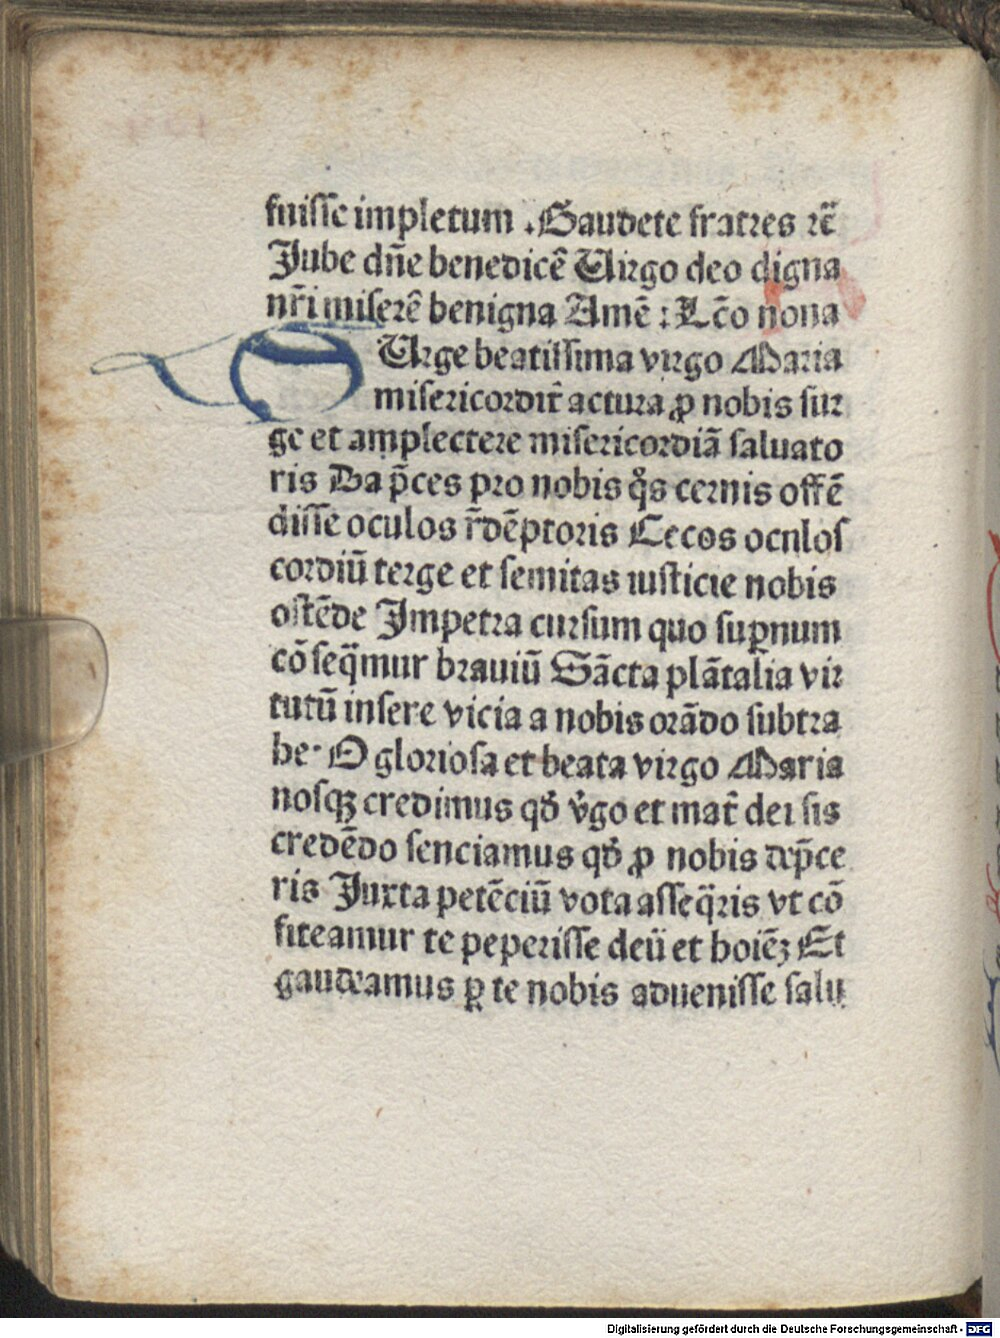 fuisse impletum . Gaudete fratres ⁊c̄
Jube dn̄e benedicē Uirgo deo digna
nr̄i miserē benigna Amē : Lc̄o nona
Urge beatissima virgo Maria
misericordit̄ actura ꝓ nobis sur
ge et amplectere misericordiā saluato
ris Da p̄ces pro nobis q̄s cernis offē
disse oculos r̄dēptoris Cecos oculos
cordiū terge et semitas iusticie nobis
ostēde Jmpetra cursum quo suꝑnum
cōseq̄mur brauiū Sācta plātaria vir
tutū insere vicia a nobis orādo subtra
he· O gloriosa et beata virgo Maria
nosqꝫ credimus qď v̄go et mat̄ dei sis
credēdo senciamus qď ꝓ nobis dep̄ce
ris Juxta petēciū vota asseq̄ris vt cō
fiteamur te peperisse deū et hoiēꝫ Et
gaudeamus ꝑ te nobis aduenisse salu
Digitalisierung gefördert durch die Deutsche Forschungsgemeinschaft - DFG